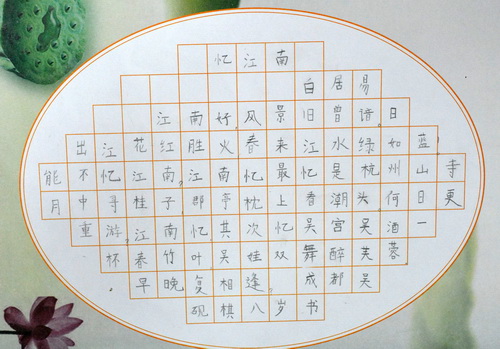 忆江南
白居易
江南好。风景旧曾谙。日
出江花红胜火春来江水绿如蓝
能不忆江南。江南忆最忆是杭州山寺
月中寻桂子,郡亭枕上看潮头。何日更
重游。江南忆其次忆吴宫吴酒一
杯春竹叶。吴娃双舞醉芙蓉
。早晚复相逢。成都吴
砚棋八岁书